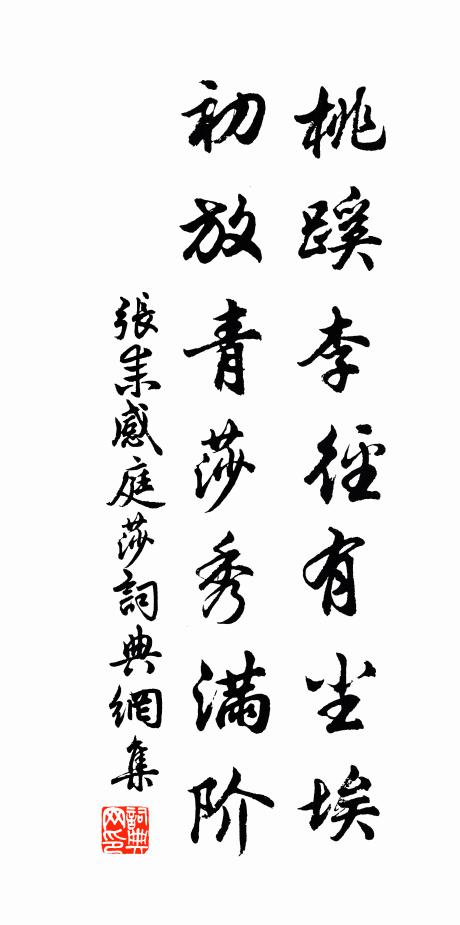 桃蹊李徑有尘埃
初放青莎秀满阶
張耒感庭莎詞典網集
詞典网印